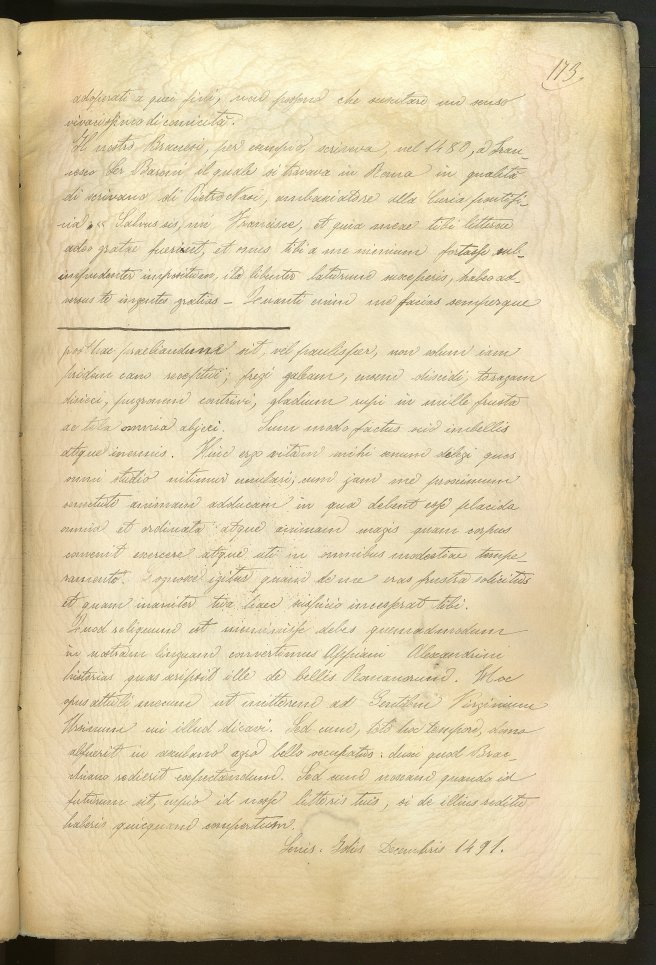 173.
adoperate a quei fini, non possono che suscitare un senso
vivan di comicità.
Il nostro Braccesi, per esempio, scriveva, nel 1480, a Fran-
cesco Ser Baroni il quale si trovava in Roma in qualità
di scrivano di Pietro Nasi, ambasciatore alla Curia pontifi-
cia, « Salvus sis, mi Francisce, et quia meae tibi litterae
adeo gratae fuerint, et onus tibi a me nimium fortasse
impudenter impositum, ita libenter laturum susceperis, habeo ad-
versus te ingentes gratias - Quanti enim me facias semperque
posthac praeliandum sit, vel paulisper, non solum iam
pridem cani receptui; fregi galeam, ensem discidi, toracam
disieci, pugionem contrivi, gladium rupi in mille frusta
ac tela omnia abjeci. Sum modo factus imbellis
atque inermis. Huic ergo vitam mihi unum delegi quos
omni studio nitimur cum jam me proximum
senectuti animam adducam in qua debent esse placida
omnia et ordinata atque animam magis quam corpus
convenit exercere atque uti in omnibus modestiae tempe-
ramento. Cognosce igitur quam de me eras frustra solicitus
et quam inaniter tua haec suspicio increpat tibi.
Quod reliquum est meminisse debes quemadmodum
in nostram linguam convertimus Appiani Alexandrini
historias quas scripsit ille de bellis Romanorum. Hoc
opus attuli mecum ut mitterem ad Gentilem Virginium
Ursinum cui illud dicavi. Sed cum, toto hoc tempore, domo
abfuerit in asculano agro bello occupatus: duxi quod Brac-
chiano redierit expectandum. Sed cum nesciam quando id
futurum sit, cupio id nosse litteris tuis, si de illius reditu
haberis quicquam compertum.
Senis. Idis Decembris 1491.